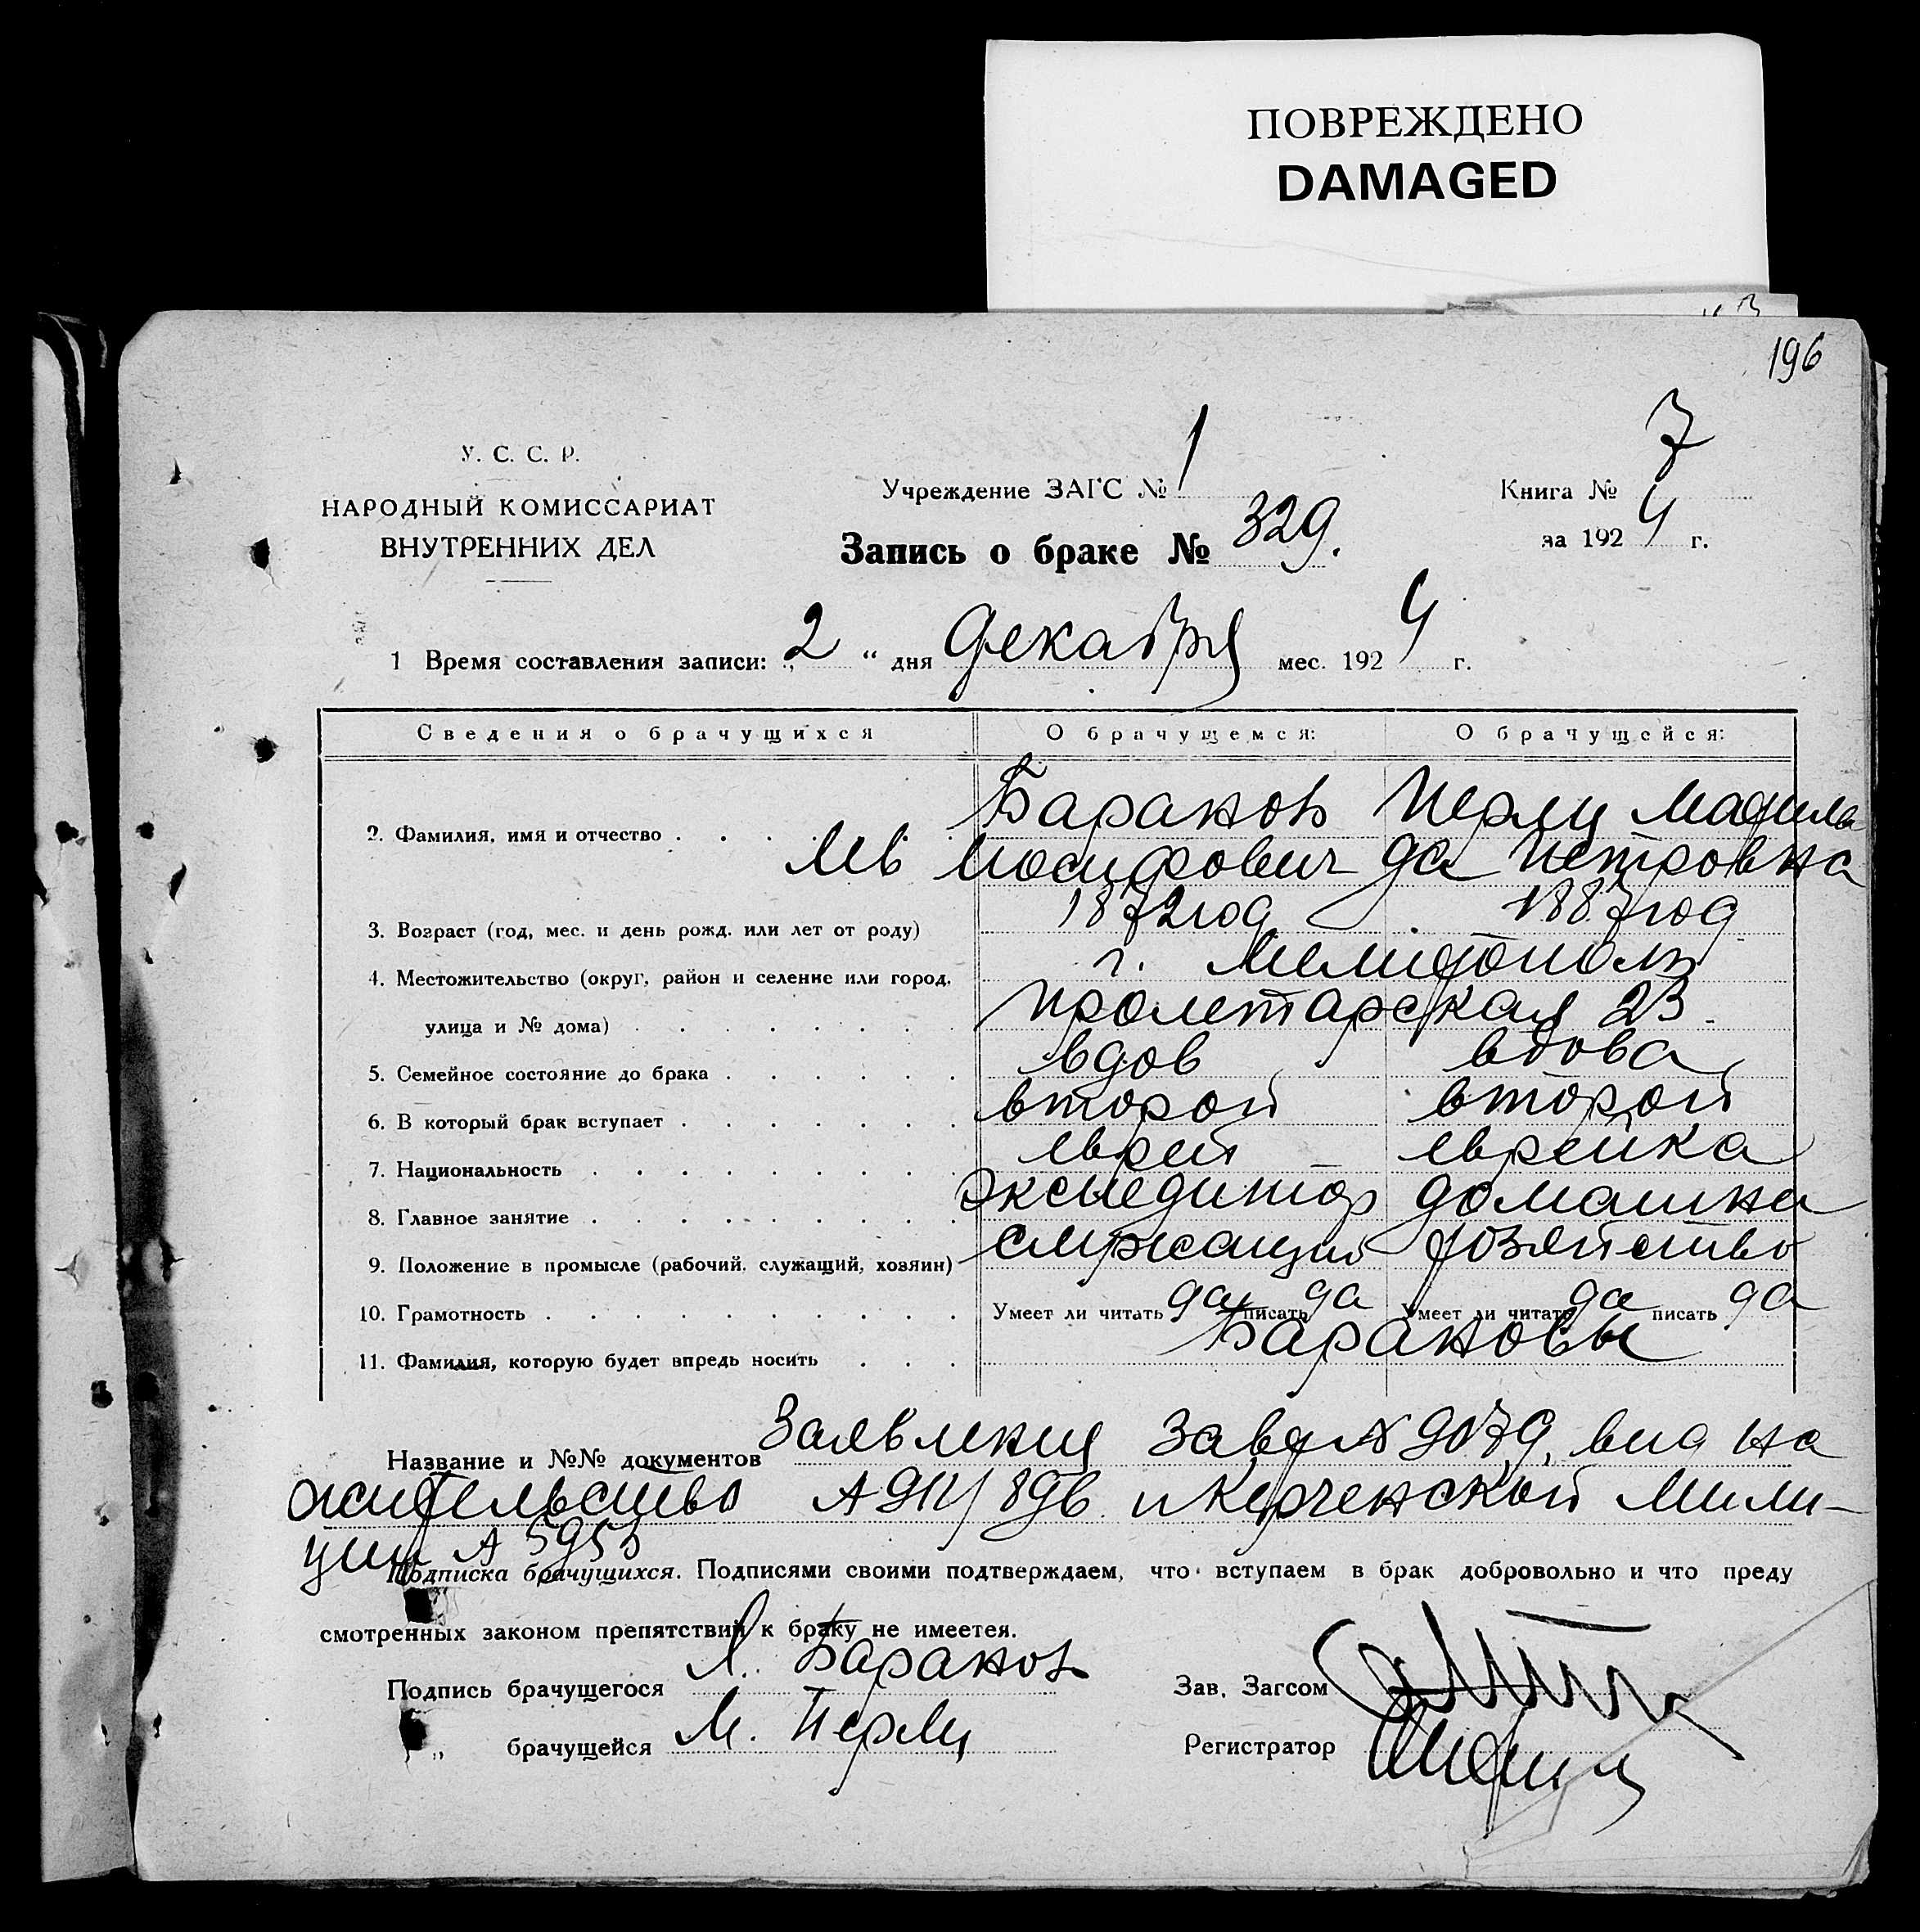 ПОВРЕЖДЕНО
DAMAGED
196
У. С. С. Р.
НАРОДНЫЙ КОМИССАРИАТ
ВНУТРЕННИХ ДЕЛ
Учреждение ЗАГС № 1
Книга № 7
за 1924 г.
Запись о браке № 329.
1 Время составления записи: „2“ дня Декабря мес. 1924 г.
Сведения о брачущихся О брачущемся: О брачущейся:
2. Фамилия, имя и отчество Баранов Перлц Матиль
Лев Иосифович да Петровна
3. Возраст (год, мес. и день рожд. или лет от роду) 1872 год 1887 год
4. Местожительство (округ, район и селение или город, г. Мелитополь
улица и № дома) Пролетарская 23.
5. Семейное состояние до брака вдов вдова
6. В который брак вступает второй второй
7. Национальность еврей еврейка
8. Главное занятие Экспедитор домашнее
9. Положение в промысле (рабочий, служащий, хозяин) служащий хозяйство
10. Грамотность Умеет ли читать да писать да Умеет ли читать да писать да
11. Фамилия, которую будет впредь носить Барановы
Название и №№ документов Заявления № 9079, вид на
жительство и Керченской Мили-
ции 5953
Подписка брачущихся. Подписями своими подтверждаем, что вступаем в брак добровольно и что преду
смотренных законом препятствий к браку не имеется.
Подпись брачущегося Л. Баранов
Зав. Загсом
„ брачущейся М. Перлц
Регистратор